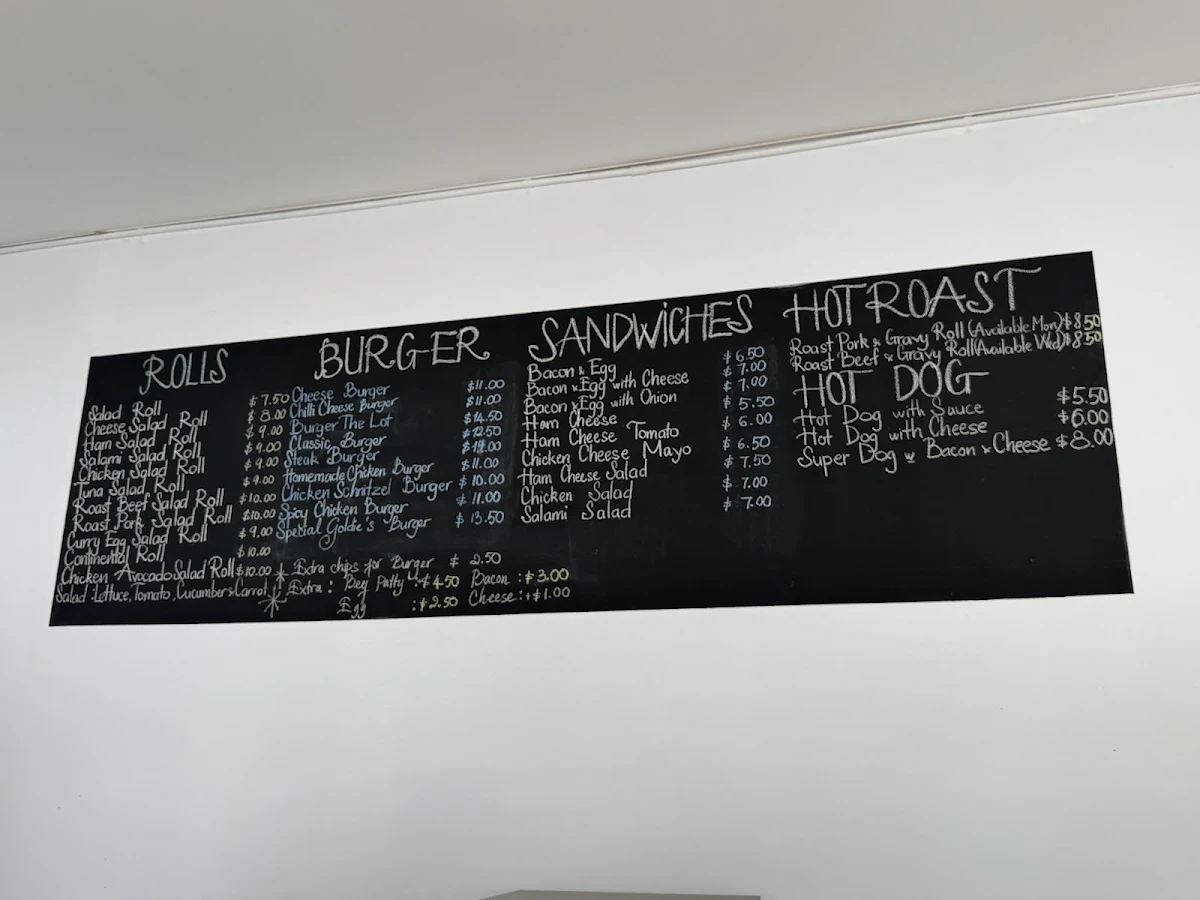 ROLLS
Salad Roll $7.50
Cheese Salad Roll $8.00
Ham Salad Roll $9.00
Salami Salad Roll $9.00
Chicken Salad Roll $9.00
Tuna Salad Roll $9.00
Roast Beef Salad Roll $10.00
Roast Pork Salad Roll $10.00
Curry Egg Salad Roll $9.00
Continental Roll $10.00
Chicken Avocado Salad Roll $10.00
Salad: Lettuce, Tomato, Cucumber & Carrot
BURGER
Cheese Burger $11.00
Chilli Cheese Burger $11.00
Burger The Lot $14.50
Classic Burger $12.50
Steak Burger
Homemade Chicken Burger $11.00
Chicken Schnitzel Burger $10.00
Spicy Chicken Burger $11.00
Special Goldie's Burger $13.50
* Extra chips for Burger $2.50
* Extra: Beef Patty: +$4.50 Bacon: $3.00
Egg: +$2.50 Cheese: +$1.00
SANDWICHES
Bacon & Egg $6.50
Bacon & Egg with Cheese $7.00
Bacon & Egg with Onion $7.00
Ham Cheese $5.50
Ham Cheese Tomato $6.00
Chicken Cheese Mayo $6.50
Ham Cheese Salad $7.50
Chicken Salad $7.00
Salami Salad $7.00
HOT ROAST
Roast Pork & Gravy Roll (Available Mon) $8.50
Roast Beef & Gravy Roll (Available Wed) $8.50
HOT DOG
Hot Dog with Sauce $5.50
Hot Dog with Cheese $6.00
Super Dog w Bacon & Cheese $8.00